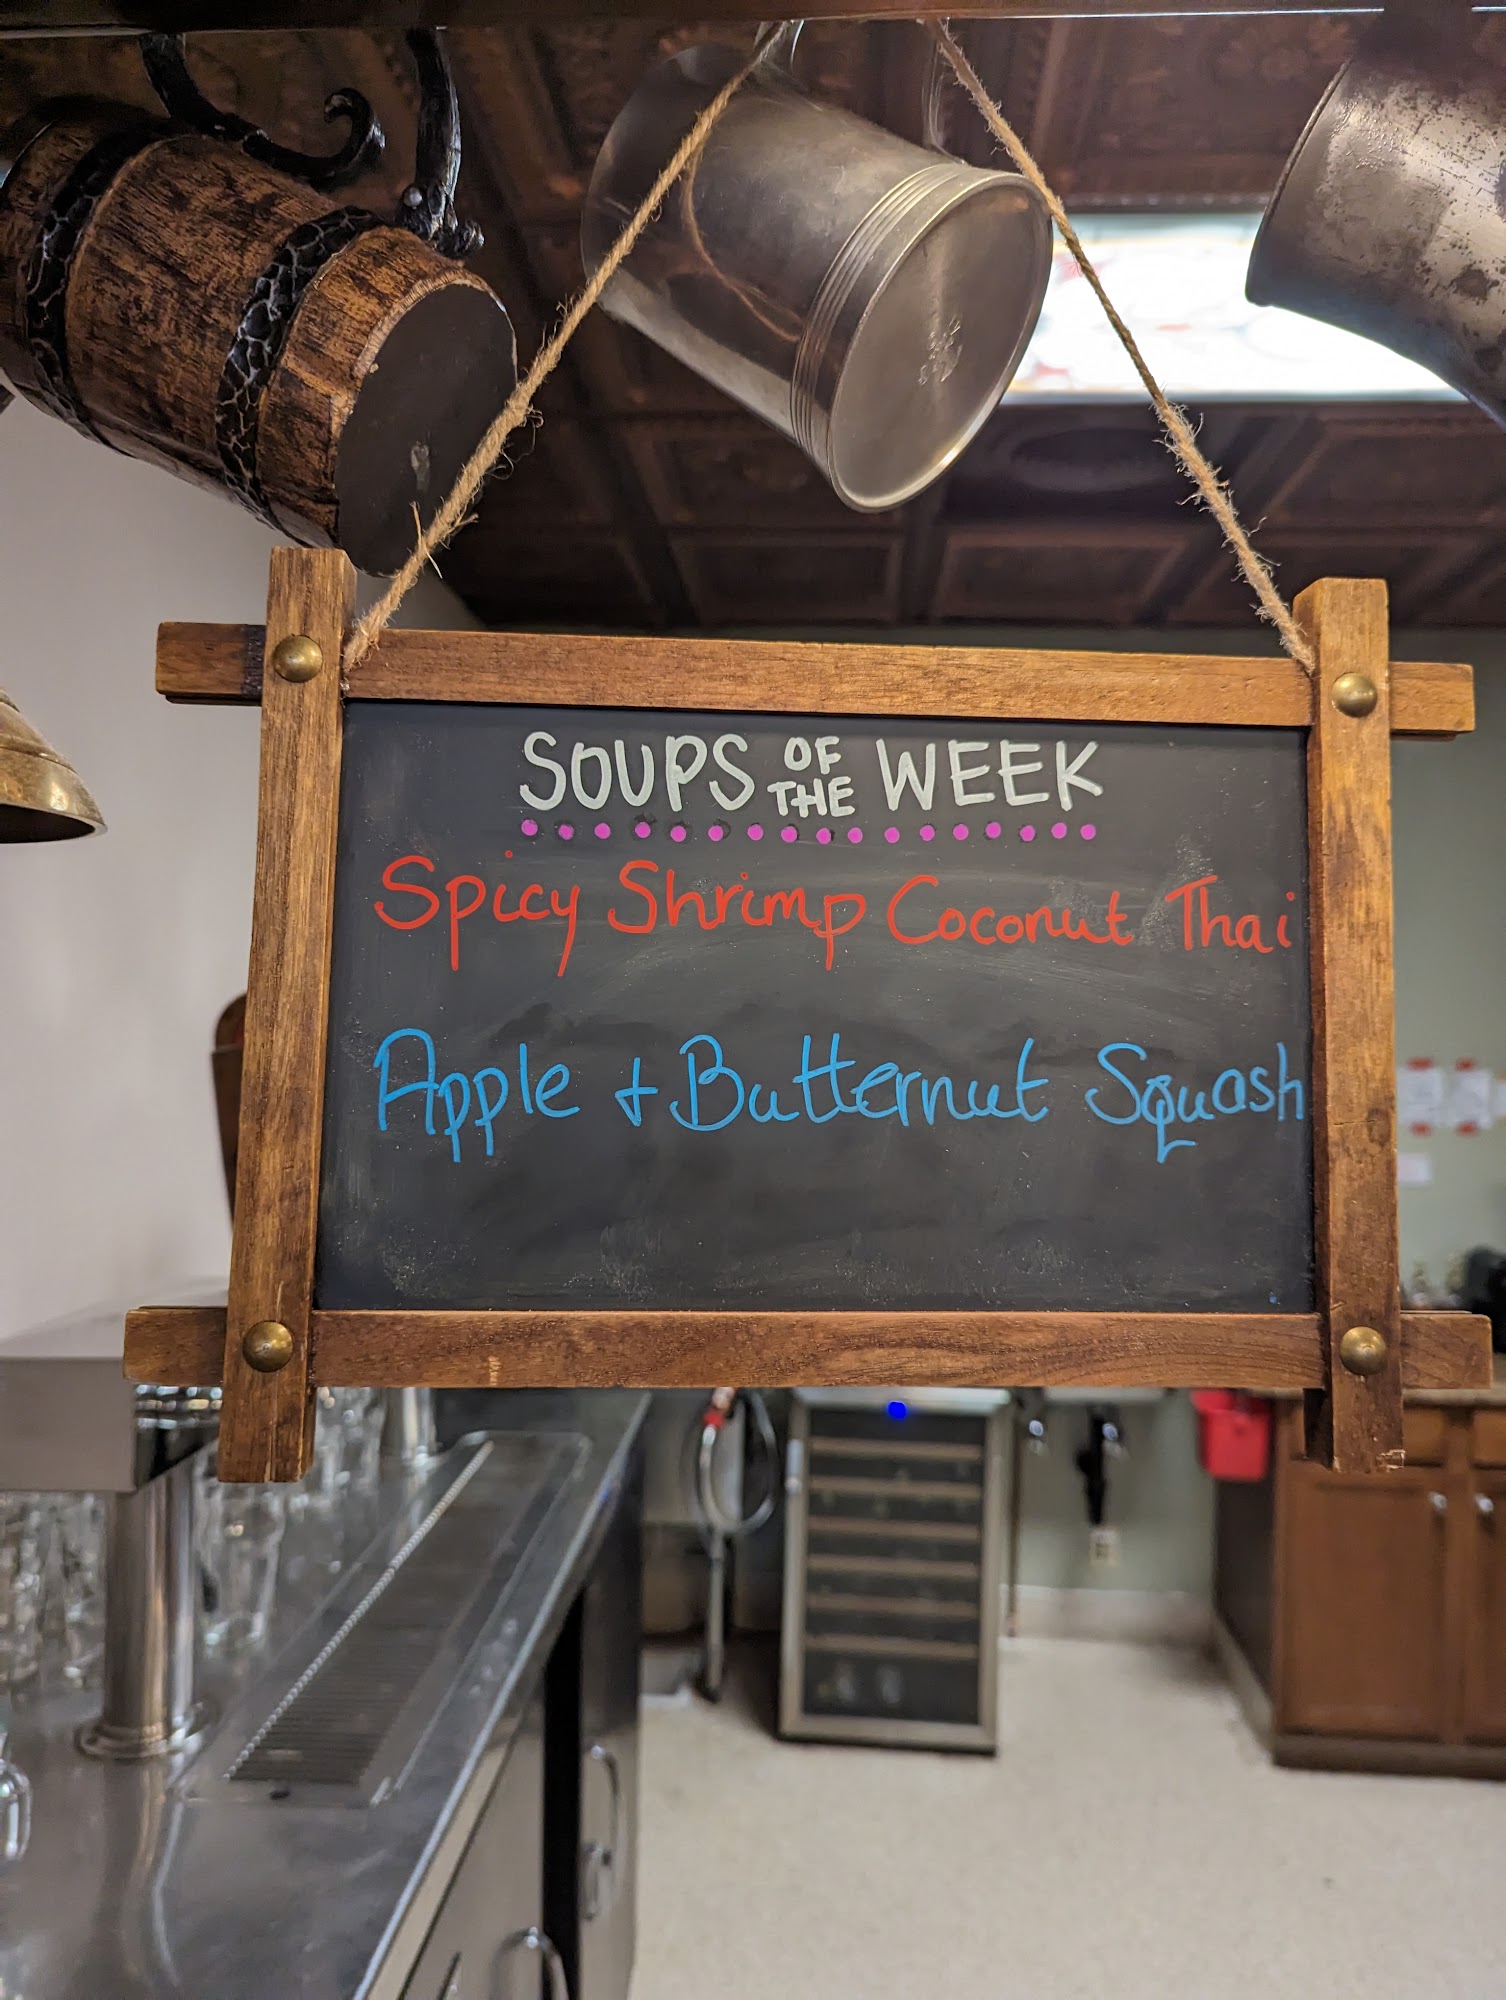 SOUPS OF THE WEEK
Spicy Shrimp Coconut Thai
Apple + Butternut Squash